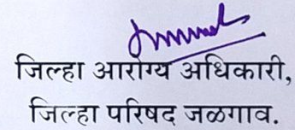 जिल्हा आरोग्य अधिकारी,
जिल्हा परिषद जळगाव.